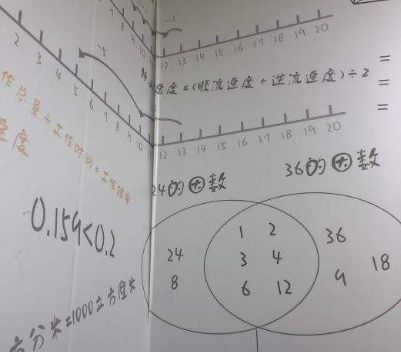 12 13 14 15 16 17 18 19 20
2 3 4 5 6 7 8 9 10
速度=(顺流速度+逆流速度)÷2
12 13 14 15 16 17 18 19 20
作总量÷工作时间=工作效率
速度
0.159<0.2
方分米=1000立方厘米
24的因数
36的因数
24
8
1 2
3 4
6 12
36
9 18
=
=
=